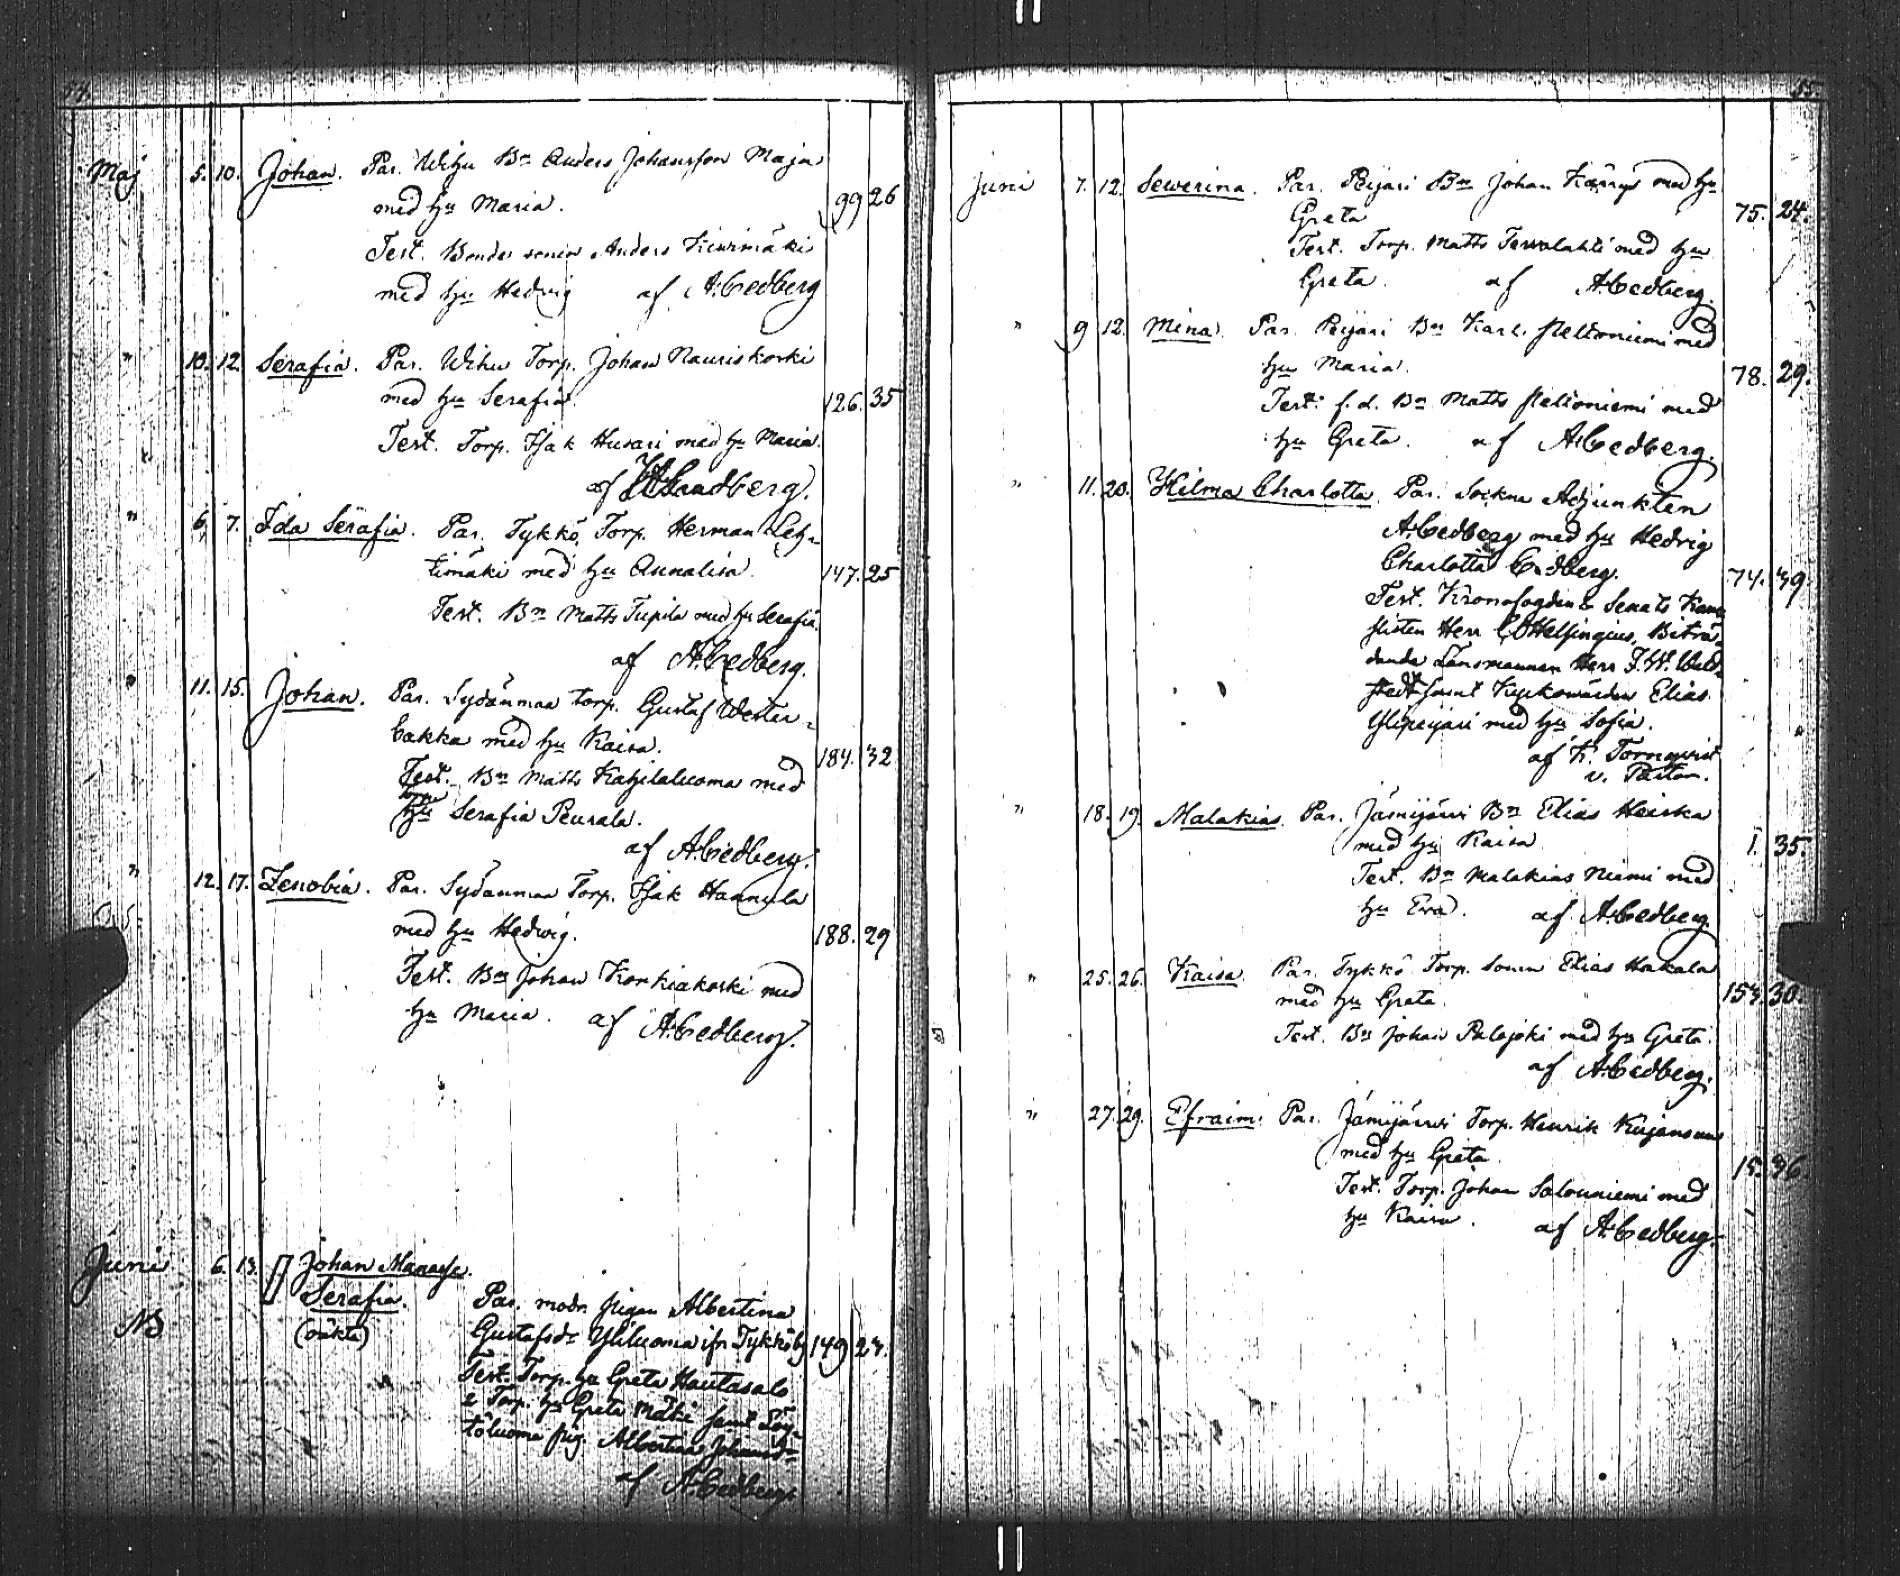 Maj 5. 10. Johan. Par. Wihu Bn Anders Johansson Maja
med hu Maria. 99 26
Test. Bonde sonen Anders Kiurimäki
med hu Hedvig af A. Cedberg
" 10. 12. Serafia. Par. Wihu Torp. Johan Nauriskoski
med hu Serafia. 126. 35
Test. Torp. Isak Husari med hu Maria.
af Sandberg.
" 6. 7. Ida Serafia. Par. Tykkö, Torp. Herman Leh-
timäki med hu Annalisa. 147. 25
Test. Bn Matts Tupila med hu Serafia.
af A. Cedberg.
" 11. 15. Johan. Par. Sydänmaa torp. Gustaf Wester-
backa med hu Kaisa. 184. 32
Test. Bn Matts Katjilaluoma med
hu Serafia Peurala.
af A. Cedberg.
" 12. 17. Zenobia. Par. Sydänmaa Torp. Isak Hannula
med hu Hedwig. 188. 29
Test. Bn Johan Korkiakoski med
hu Maria. af A. Cedberg.
Juni 6. 13. Johan Manasse.
Serafia. Par. modr. pigan Albertina
NB (oäkta) Gustafsdr Yliluoma ifr. Tykköby 149 24.
Test. Torp. hu Greta Hautasalo
Torp. hu Greta Mäki samt
töluoma pig. Albertina Johansdr
af A. Cedberg.
Juni 7. 12. Sewerina. Par. Peijari Bn Johan Kärrys med hu
Greta 75. 24.
Test. Torp. Matts Tervalahti med hu
Greta. af A. Cedberg.
" 9 12. Mina. Par. Peijari Bn Karl Peltoniemi med
hu Maria. 78. 29.
Test. f. d. Bn Matts Peltoniemi med
hu Greta. af A. Cedberg.
" 11. 20. Hilma Charlotta. Par. Sockne Adjunkten
A. Cedberg med hu Hedvig
Charlotta Cedberg. 74. 39.
Test. Kronofogden Senats Kans-
listen Herr Helsingius, Biträ-
dande Länsmannen Herr
stedt samt Kyrkowärden Elias
Ylipeijari med hu Sofia.
af K. Törnqvist
v. Pastor.
" 18. 19. Malakias. Par. Jämijärvi Bn Elias Heiska
med hu Kaisa 1. 35.
Test. Bn Malakias Niemi med
hu Eva. af A. Cedberg.
" 25. 26. Kaisa. Par. Tykkö Torp. sonen Elias Hakala
med hu Greta. 154. 30.
Test. Bn Johan Palojoki med hu Greta.
af A. Cedberg.
" 27. 29. Efraim. Par. Jämijärvi Torp. Henrik Kujansuu
med hu Greta. 15. 36
Test. Torp. Johan Salouniemi med
hu Kaisa. af A. Cedberg.